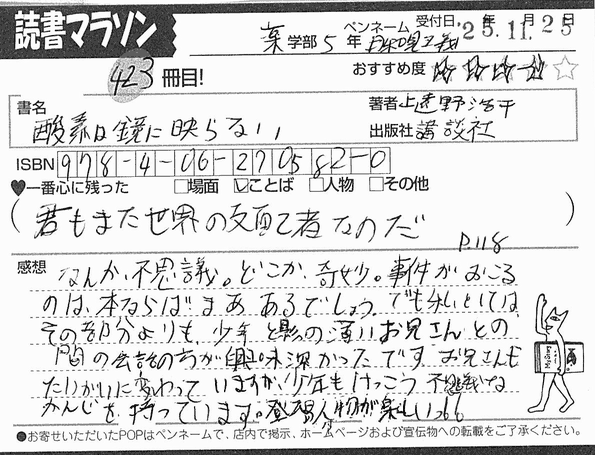 読書マラソン
薬学部5年 ペンネーム 自唱正義 受付日 '25年11月25日
423冊目!
おすすめ度 ★★★★☆
書名 酸素は鏡に映らない
著者 上遠野浩平
出版社 講談社
ISBN 978-4-06-270582-0
一番心に残った □場面 ☑ことば □人物 □その他
(君もまた世界の支配者なのだ)
P.118
感想 なんか、不思議。どこか、奇妙。事件がおこる
のは、本ならばまああるでしょう。でも私としては、
その部分よりも、少年と影の薄いお兄さんとの
間の会話の方が興味深かったです。お兄さんも
たいがいに変わっていますが、少年もけっこう不思議な
かんじを持っています。登場人物が楽しい
My Diary
●お寄せいただいたPOPはペンネームで、店内で掲示、ホームページおよび宣伝物への転載をご了承ください。